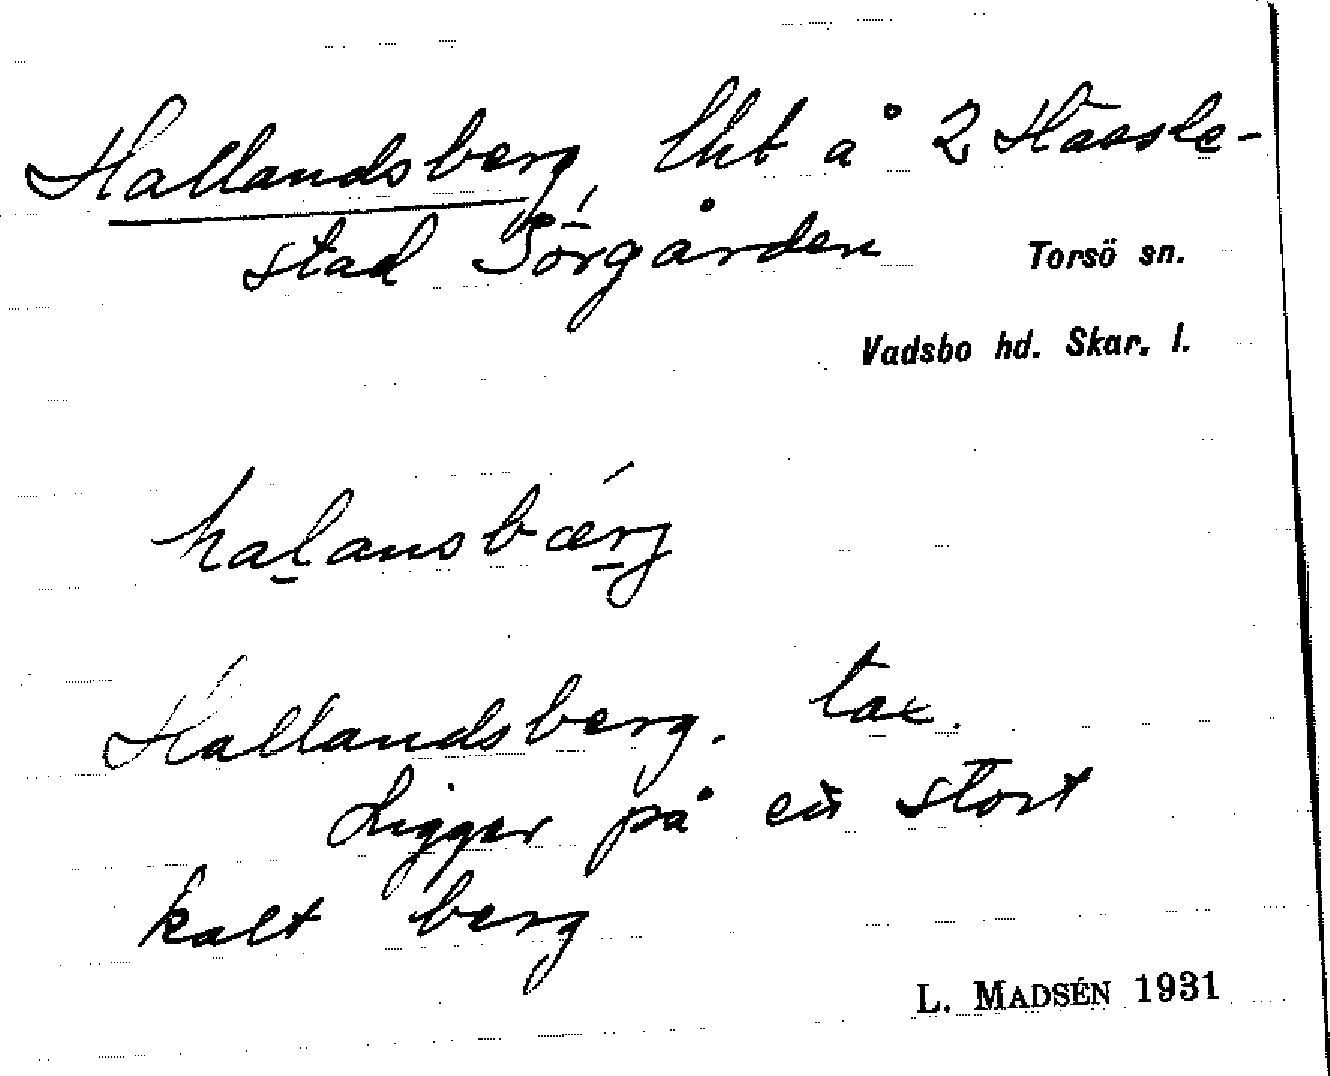 Hallandsberg, lht å 2 Hassle-
stad Sörgården
Torsö sn.
Vadsbo hd. Skar. l.
halansbærg
Hallandsberg. tax.
Ligger på ett stort
kalt berg
L. MADSÉN 1931